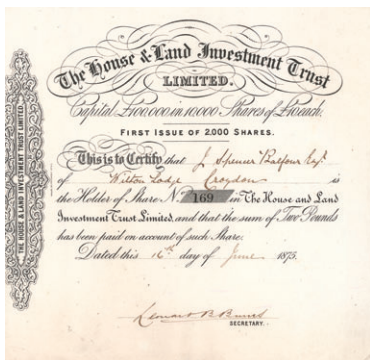 The House & Land Investment Trust
LIMITED.
Capital £100,000 in 10,000 Shares of £10 each.
FIRST ISSUE OF 2,000 SHARES.
This is to Certify that J Spencer Balfour Esqr
of Wilton Lodge Croydon is
the Holder of Share No. 169 in The House and Land
Investment Trust Limited, and that the sum of Two Pounds
has been paid on account of such Share.
Dated this 16th day of June 1875.
SECRETARY.
THE HOUSE & LAND INVESTMENT TRUST LIMITED.